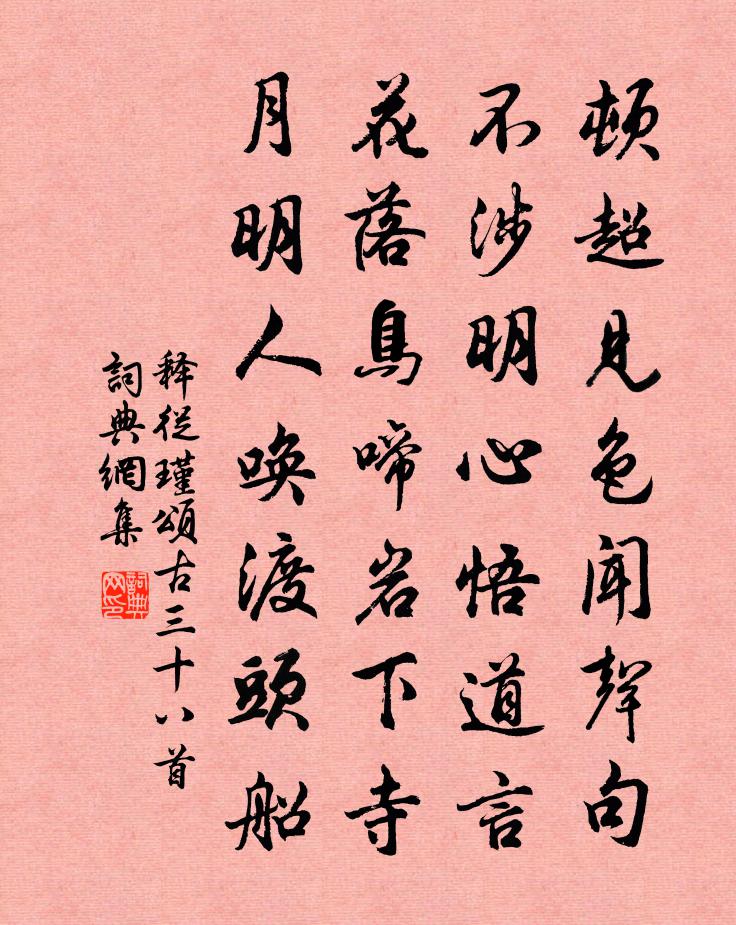 頓超見色聞聲句
不涉明心悟道言
花落鳥啼岩下寺
月明人喚渡頭船
释從瑾頌古三十八首
詞典網集
詞典網印